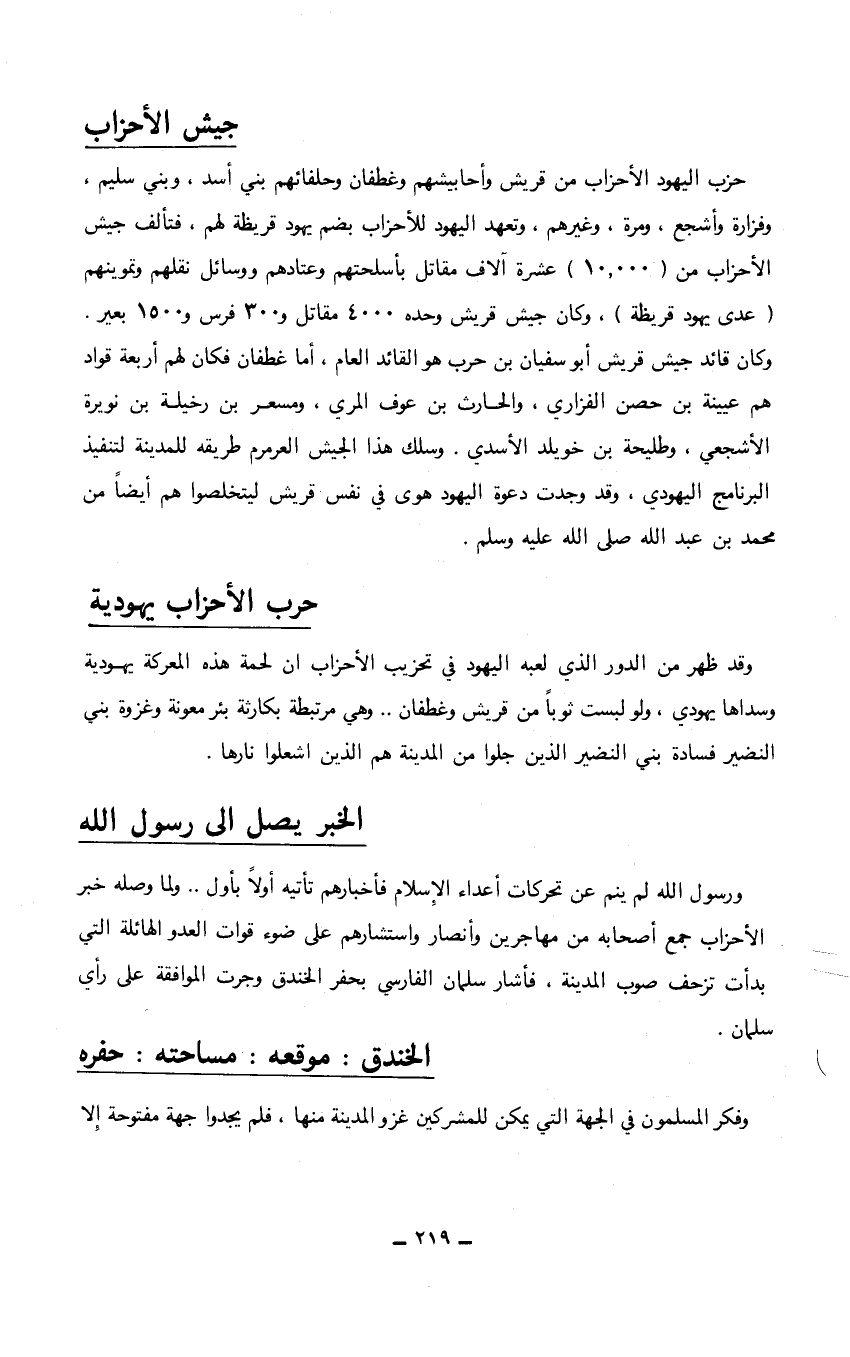 جيش الأحزاب
حزب اليهود الأحزاب من قريش وأحابيشهم وغطفان وحلفائهم بني أسد ، وبني سليم ،
وفزارة وأشجع ، ومرة ، وغيرهم ، وتعهد اليهود للأحزاب بضم يهود قريظة لهم ، فتألف جيش
الأحزاب من ( ١٠,٠٠٠ ) عشرة آلاف مقاتل بأسلحتهم وعتادهم ووسائل نقلهم وتموينهم
( عدى يهود قريظة ) ، وكان جيش قريش وحده ٤٠٠٠ مقاتل و٣٠٠ فرس و١٥٠٠ بعير .
وكان قائد جيش قريش أبو سفيان بن حرب هو القائد العام ، أما غطفان فكان لهم أربعة قواد
هم عيينة بن حصن الفزاري ، والحارث بن عوف المري ، ومسعر بن رخيلة بن نويرة
الأشجعي ، وطليحة بن خويلد الأسدي . وسلك هذا الجيش العرمرم طريقه للمدينة لتنفيذ
البرنامج اليهودي ، وقد وجدت دعوة اليهود هوى في نفس قريش ليتخلصوا هم أيضاً من
محمد بن عبد الله صلى الله عليه وسلم .
حرب الأحزاب يهودية
وقد ظهر من الدور الذي لعبه اليهود في تحزيب الأحزاب ان لحمة هذه المعركة يهودية
وسداها يهودي ، ولو لبست ثوباً من قريش وغطفان .. وهي مرتبطة بكارثة بئر معونة وغزوة بني
النضير فسادة بني النضير الذين جلوا من المدينة هم الذين اشعلوا نارها .
الخبر يصل الى رسول الله
ورسول الله لم ينم عن تحركات أعداء الإسلام فأخبارهم تأتيه أولاً بأول .. ولما وصله خبر
الأحزاب جمع أصحابه من مهاجرين وأنصار واستشارهم على ضوء قوات العدو الهائلة التي
بدأت تزحف صوب المدينة ، فأشار سلمان الفارسي بحفر الخندق وجرت الموافقة على رأي
سلمان .
الخندق : موقعه : مساحته : حفره
وفكر المسلمون في الجهة التي يمكن للمشركين غزو المدينة منها ، فلم يجدوا جهة مفتوحة إلا
ـ ٢١٩ ـ